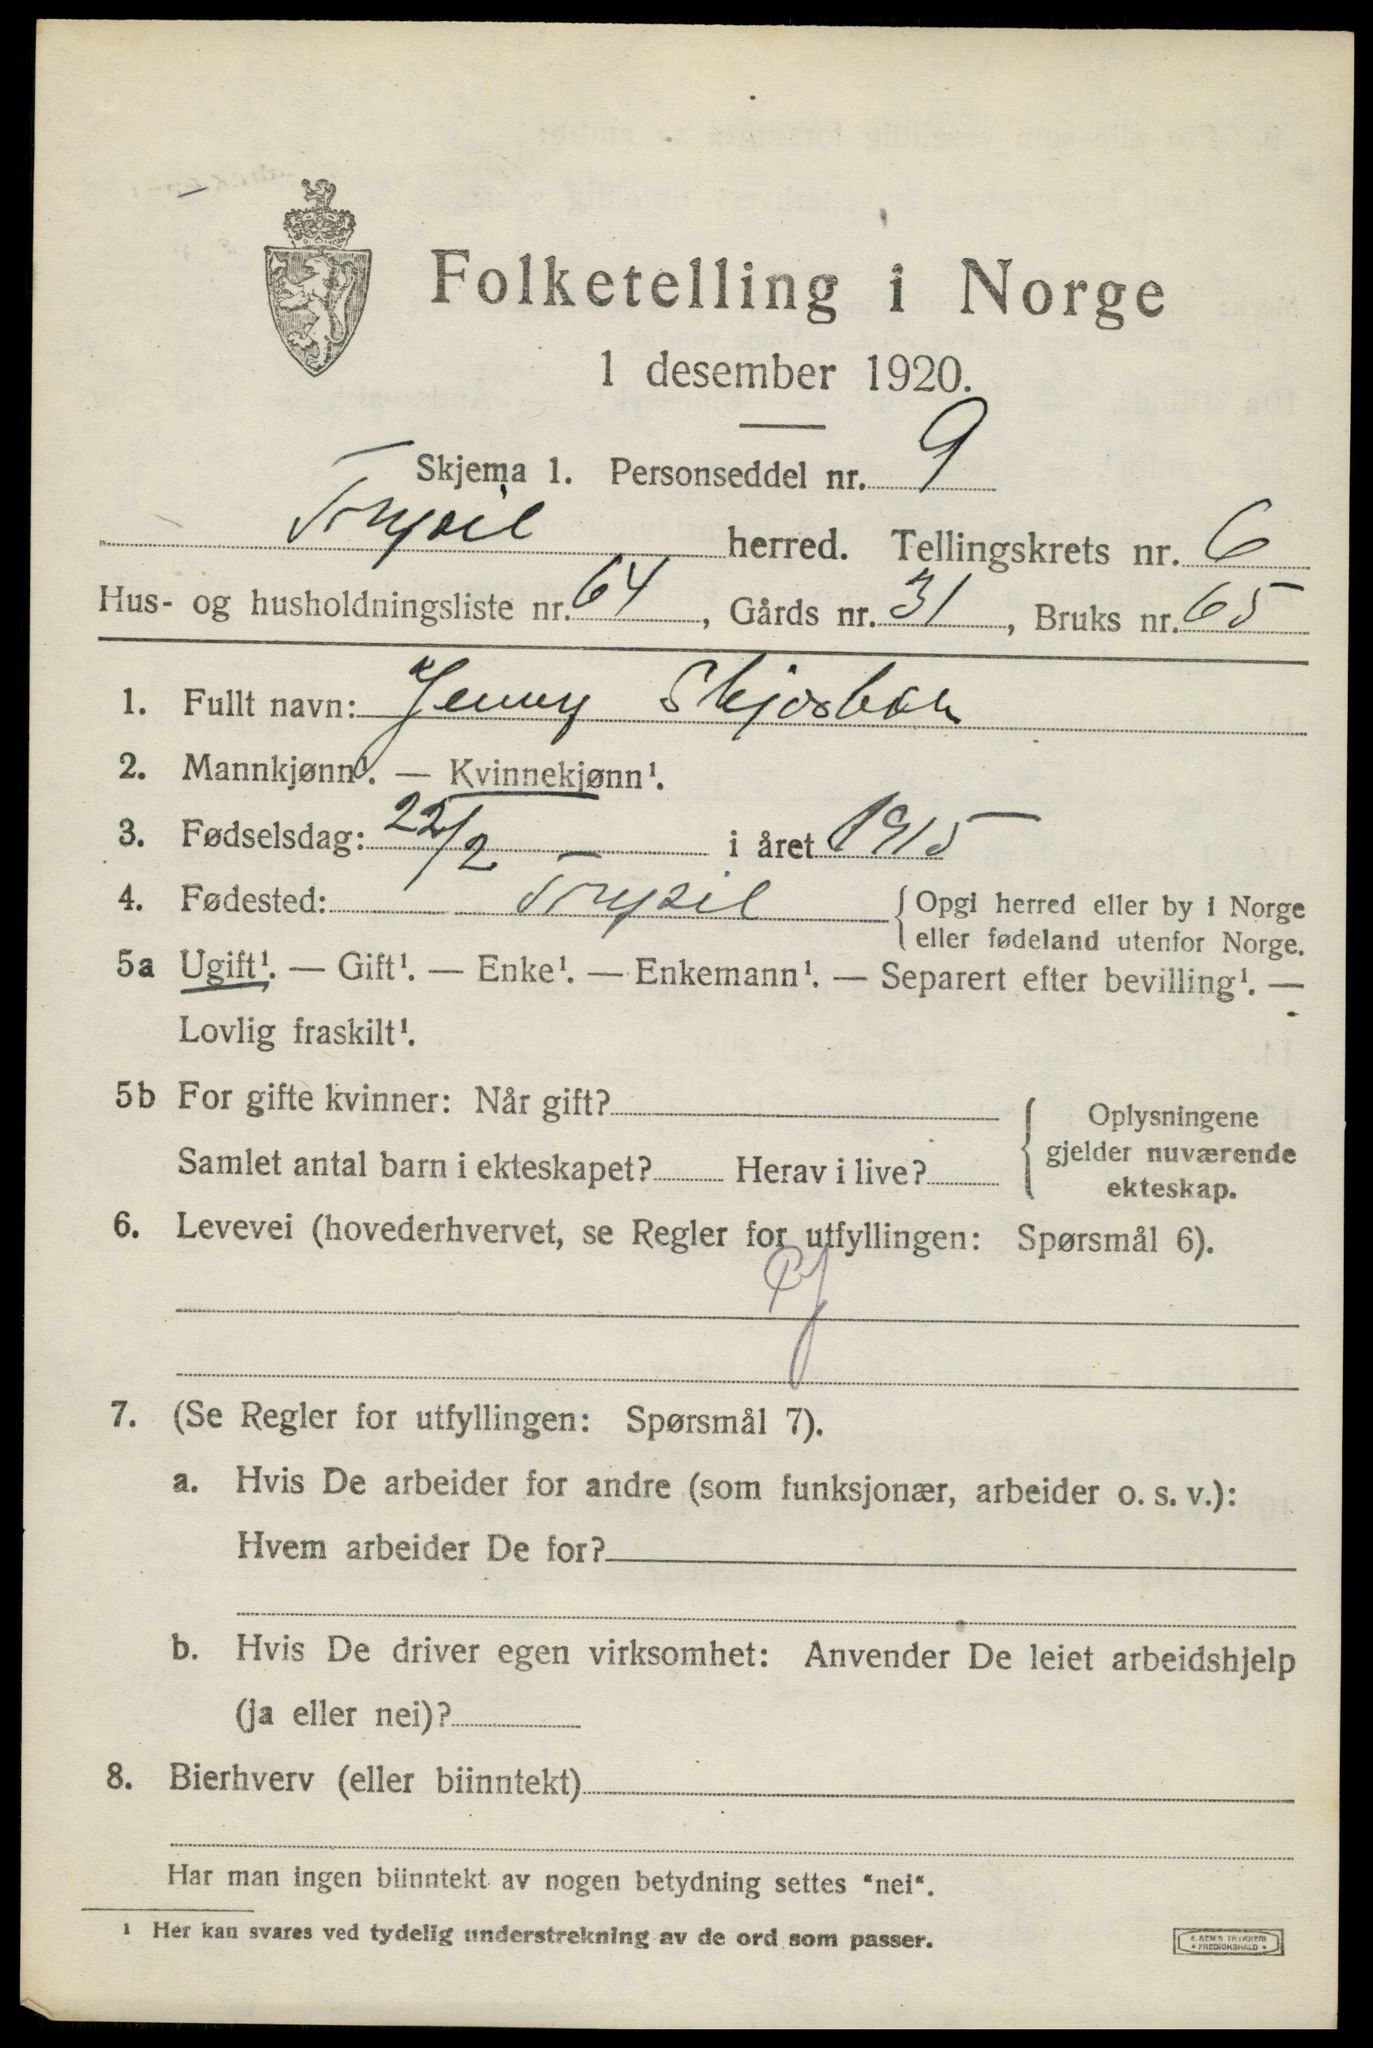 Folketelling i Norge
1 desember 1920.
Skjema 1. Personseddel nr. 9
Trysil herred. Tellingskrets nr. 6
Hus- og husholdningsliste nr. 64, Gårds nr. 31, Bruks nr. 65
1. Fullt navn: Jenny
2. Mannkjønn¹. — Kvinnekjønn¹.
3. Fødselsdag: 22/2 i året 1915
4. Fødested: Trysil { Opgi herred eller by i Norge
eller fødeland utenfor Norge.
5a Ugift¹. — Gift¹. — Enke¹. — Enkemann¹. — Separert efter bevilling¹. —
Lovlig fraskilt¹.
5b For gifte kvinner: Når gift? { Oplysningene
gjelder nuværende
ekteskap.
Samlet antal barn i ekteskapet? Herav i live?
6. Levevei (hovederhvervet, se Regler for utfyllingen: Spørsmål 6).
7. (Se Regler for utfyllingen: Spørsmål 7).
a. Hvis De arbeider for andre (som funksjonær, arbeider o. s. v.):
Hvem arbeider De for?
b. Hvis De driver egen virksomhet: Anvender De leiet arbeidshjelp
(ja eller nei)?
8. Bierhverv (eller biinntekt)
Har man ingen biinntekt av nogen betydning settes "nei".
¹ Her kan svares ved tydelig understrekning av de ord som passer.